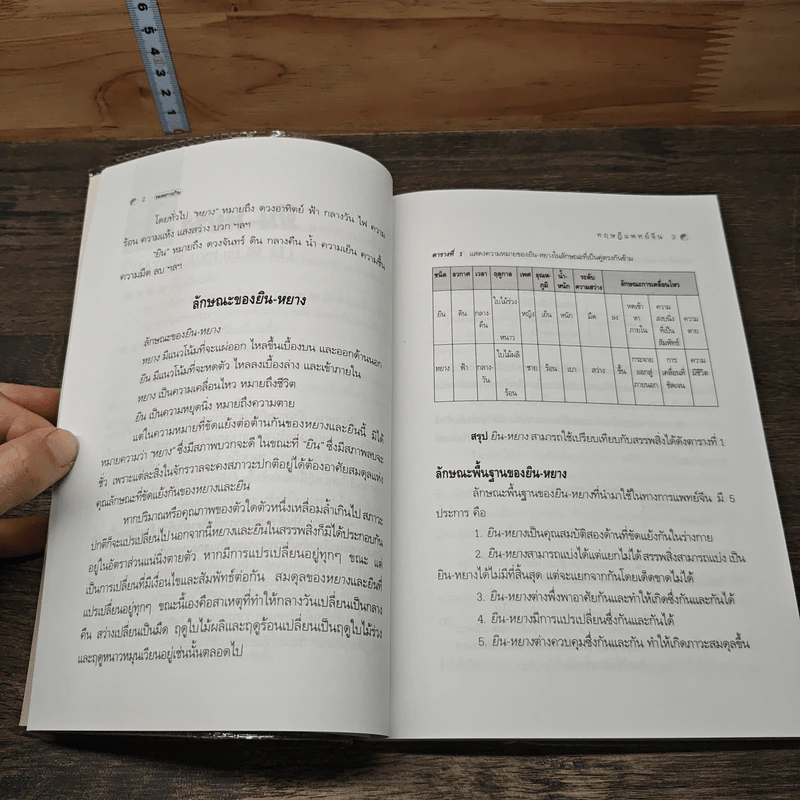 6 5 4 3 2 1
2
โดยทั่วไป "หยาง" หมายถึง ดวงอาทิตย์ ฟ้า กลางวัน ไฟ ความ
ร้อน ความแห้ง แสงสว่าง บวก ฯลฯ
"ยิน" หมายถึง ดวงจันทร์ ดิน กลางคืน น้ำ ความเย็น ความชื้น
ความมืด ลบ ฯลฯ
ลักษณะของยิน-หยาง
ลักษณะของยิน-หยาง
หยาง มีแนวโน้มที่จะแผ่ออก ไหลขึ้นเบื้องบน และออกด้านนอก
ยิน มีแนวโน้มที่จะหดตัว ไหลลงเบื้องล่าง และเข้าภายใน
หยาง เป็นความเคลื่อนไหว หมายถึงชีวิต
ยิน เป็นความหยุดนิ่ง หมายถึงความตาย
แต่ในความหมายที่ขัดแย้งต่อต้านกันของหยางและยินนี้ มิได้
หมายความว่า "หยาง" ซึ่งมีสภาพบวกจะดี ในขณะที่ "ยิน" ซึ่งมีสภาพลบจะ
ชั่ว เพราะแต่ละสิ่งในจักรวาลจะคงสภาวะปกติอยู่ได้ต้องอาศัยสมดุลแห่ง
คุณลักษณะที่ขัดแย้งกันของหยางและยิน
หากปริมาณหรือคุณภาพของตัวใดตัวหนึ่งเหลื่อมล้ำเกินไป สภาวะ
ปกติก็จะแปรเปลี่ยนไป นอกจากนี้หยางและยินในสรรพสิ่งก็มิได้ประกอบกัน
อยู่ในอัตราส่วนแน่นิ่งตายตัว หากมีการแปรเปลี่ยนอยู่ทุกๆ ขณะ แต่
เป็นการเปลี่ยนที่มีเงื่อนไขและสัมพันธ์ต่อกัน สมดุลของหยางและยินที่
แปรเปลี่ยนอยู่ทุกๆ ขณะนี้เองคือสาเหตุที่ทำให้กลางวันเปลี่ยนเป็นกลาง
คืน สว่างเปลี่ยนเป็นมืด ฤดูใบไม้ผลิและฤดูร้อนเปลี่ยนเป็นฤดูใบไม้ร่วง
และฤดูหนาวหมุนเวียนอยู่เช่นนั้นตลอดไป
ทฤษฎีแพทย์จีน 3
ตารางที่ 1 แสดงความหมายของยิน-หยางในลักษณะที่เป็นคู่ตรงกันข้าม
ชนิด อวกาศ เวลา ฤดูกาล เพศ อุณหภูมิ น้ำหนัก ระดับความสว่าง ลักษณะการเคลื่อนไหว
ยิน ดิน กลางคืน ใบไม้ร่วง หนาว หญิง เย็น หนัก มืด ลง หดเข้าหาภายใน ความสงบนิ่งที่เป็นสัมพัทธ์ ความตาย
หยาง ฟ้า กลางวัน ใบไม้ผลิ ร้อน ชาย ร้อน เบา สว่าง ขึ้น กระจายออกสู่ภายนอก การเคลื่อนที่ชัดเจน ความมีชีวิต
สรุป ยิน-หยาง สามารถใช้เปรียบเทียบกับสรรพสิ่งได้ดังตารางที่ 1
ลักษณะพื้นฐานของยิน-หยาง
ลักษณะพื้นฐานของยิน-หยางที่นำมาใช้ในทางการแพทย์จีน มี 5
ประการ คือ
1. ยิน-หยางเป็นคุณสมบัติสองด้านที่ขัดแย้งกันในร่างกาย
2. ยิน-หยางสามารถแบ่งได้แต่แยกไม่ได้ สรรพสิ่งสามารถแบ่ง เป็น
ยิน-หยางได้ไม่มีที่สิ้นสุด แต่จะแยกจากกันโดยเด็ดขาดไม่ได้
3. ยิน-หยางต่างพึ่งพาอาศัยกันและทำให้เกิดซึ่งกันและกันได้
4. ยิน-หยางมีการแปรเปลี่ยนซึ่งกันและกันได้
5. ยิน-หยางต่างควบคุมซึ่งกันและกัน ทำให้เกิดภาวะสมดุลขึ้น